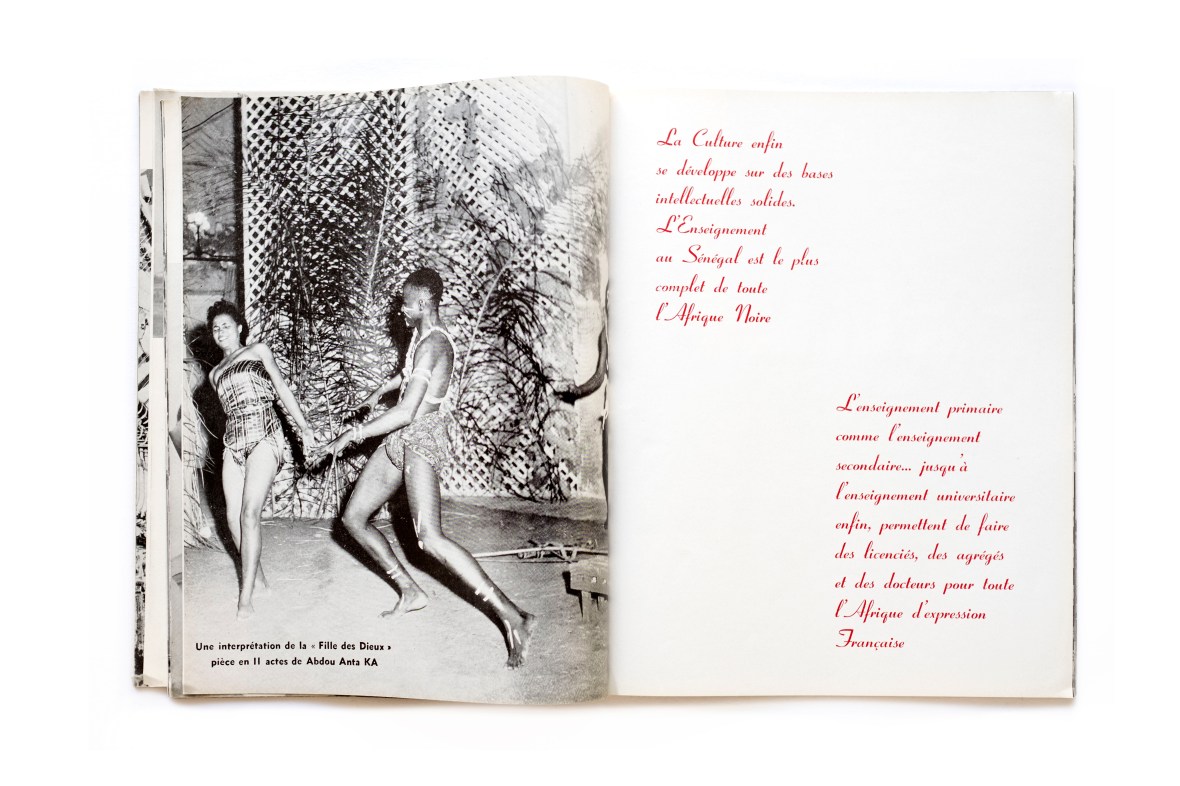 Une interprétation de la « Fille des Dieux »
pièce en II actes de Abdou Anta KA
La Culture enfin
se développe sur des bases
intellectuelles solides.
L'Enseignement
au Sénégal est le plus
complet de toute
l'Afrique Noire
L'enseignement primaire
comme l'enseignement
secondaire... jusqu'à
l'enseignement universitaire
enfin, permettent de faire
des licenciés, des agrégés
et des docteurs pour toute
l'Afrique d'expression
Française